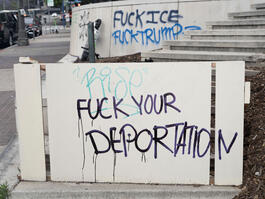 FUCK ICE
FUCK TRUMP
RISE
FUCK YOUR
DEPORTATION